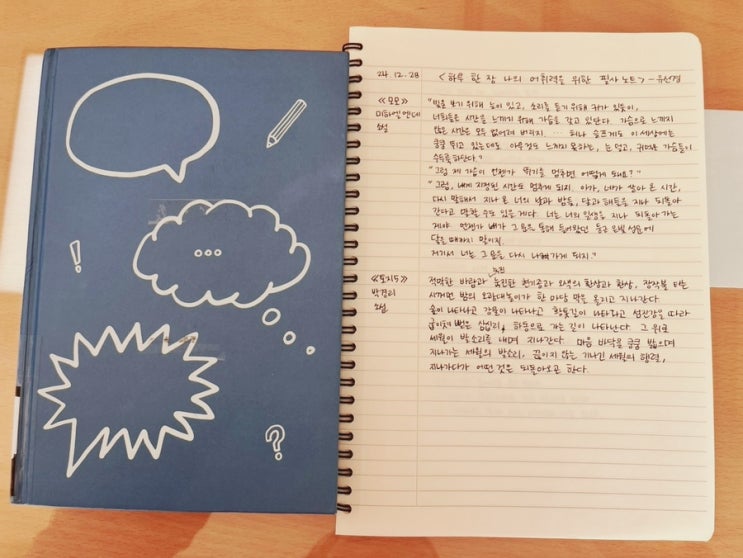 24.12.28 <하루 한 장 나의 어휘력을 위한 필사 노트> - 유선경
<<모모>>
미하엘 엔데
소설
"빛을 보기 위해 눈이 있고, 소리를 듣기 위해 귀가 있듯이,
너희들은 시간을 느끼기 위해 가슴을 갖고 있단다. 가슴으로 느끼지
않은 시간은 모두 없어져 버리지. … 허나 슬프게도 이 세상에는
쿵쿵 뛰고 있는데도 아무것도 느끼지 못하는, 눈 멀고, 귀머거리 가슴들이
수두룩하단다."
"그럼 제 가슴이 언젠가 뛰기를 멈추면 어떻게 돼요?"
"그럼, 네게 지정된 시간도 멈추게 되지. 아가, 네가 살아 온 시간,
다시 말해서 지나 온 너의 낮과 밤들, 달과 해들을 지나 되돌아
간다고 말할 수도 있을 게다. 너는 너의 일생을 지나 되돌아 가는
게야. 언젠가 네가 그 문을 통해 들어왔던 둥근 은빛 성문에
닿을 때까지 말이지.
거기서 너는 그 문을 다시 나가게 되지."
<<토지5>>
박경리
소설
적막한 바람과 숙진한 천기공과 오색의 환상과 환상, 장작불 타는
시꺼먼 밤의 오광대놀이가 한 마당 막을 올리고 지나간다
술이 나타나고 강물이 나타나고 황톳길이 나타나고 섬진강을 따라
굽이쳐 뻗은 삼십리, 하동으로 가는 길이 나타난다. 그 위로
세월이 발소리를 내며 지나간다. 마음 바닥을 쿵쿵 밟으며
지나가는 세월의 발소리, 끊이지 않는 기나긴 세월의 행렬,
지나가다가 어떤 것은 되돌아오곤 한다.